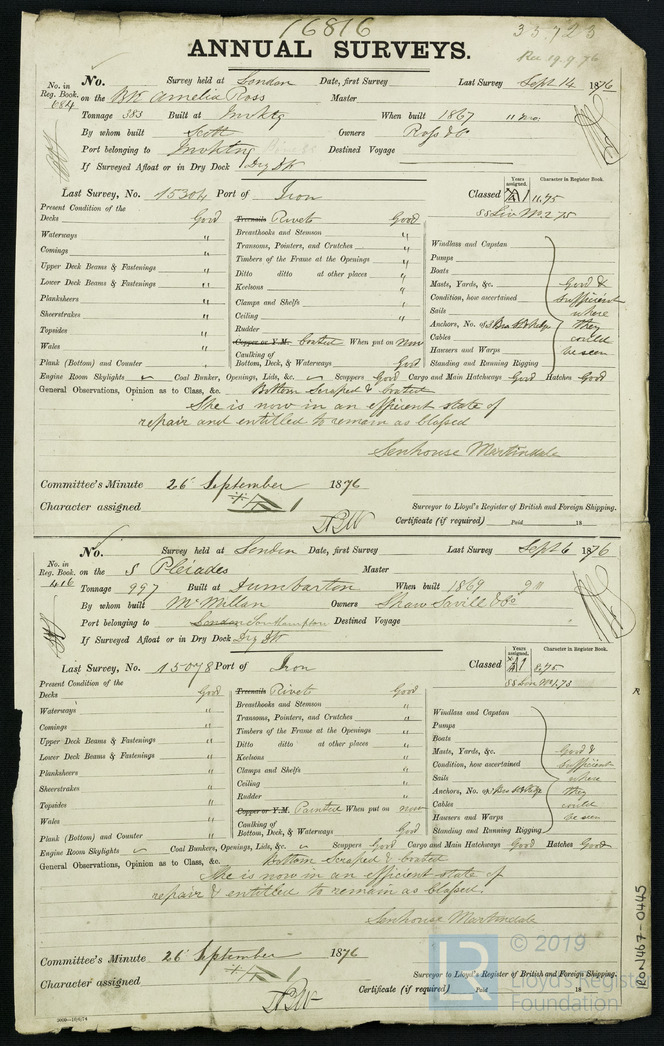 16816
35723
Rec 19.9.76
ANNUAL SURVEYS.
No. in Reg. Book. 684
No. Survey held at London Date, first Survey Last Survey Sept 14 1876
on the Bk Amelia Ross Master
Tonnage 383 Built at Invktg When built 1867 11 mo.
By whom built Scott Owners Ross & Co
Port belonging to Invktng Destined Voyage
If Surveyed Afloat or in Dry Dock Dry Dk
Last Survey, No. 15304 Port of Iron Classed
Years assigned.
Character in Register Book.
A1 11,75
Present Condition of the
Decks Good
Waterways "
Comings "
Upper Deck Beams & Fastenings "
Lower Deck Beams & Fastenings "
Planksheers "
Sheerstrakes "
Topsides "
Wales "
Plank (Bottom) and Counter "
Treenails Rivets Good
Breasthooks and Stemson "
Transoms, Pointers, and Crutches "
Timbers of the Frame at the Openings "
Ditto ditto at other places "
Keelsons "
Clamps and Shelfs "
Ceiling "
Rudder
Copper or Y.M. Coated When put on now
Caulking of
Bottom, Deck, & Waterways Good
Windlass and Capstan
Pumps
Boats
Masts, Yards, &c. Good &
Condition, how ascertained sufficient
Sails where
Anchors, No. of they
Cables could
Hawsers and Warps be seen
Standing and Running Rigging
Engine Room Skylights Coal Bunker, Openings, Lids, &c. Scuppers Good Cargo and Main Hatchways Good Hatches Good
General Observations, Opinion as to Class, &c. Bottom Scraped & Coated
She is now in an efficient state of
repair and entitled to remain as Classed
Senhouse Martindale
Committee's Minute 26 September 1876
Character assigned A 1
Surveyor to Lloyd's Register of British and Foreign Shipping.
Certificate (if required) Paid 18
No. in Reg. Book. 416
No. Survey held at London Date, first Survey Last Survey Sept 6 1876
on the S Pleiades Master
Tonnage 997 Built at Dumbarton When built 1869 9 m
By whom built McMillan Owners Shaw Savill & Co
Port belonging to London Southampton Destined Voyage
If Surveyed Afloat or in Dry Dock Dry Dk
Last Survey, No. 15078 Port of Iron Classed
Years assigned.
Character in Register Book.
A1 8,75
Present Condition of the
Decks Good
Waterways "
Comings "
Upper Deck Beams & Fastenings "
Lower Deck Beams & Fastenings "
Planksheers "
Sheerstrakes "
Topsides "
Wales "
Plank (Bottom) and Counter "
Treenails Rivets Good
Breasthooks and Stemson "
Transoms, Pointers, and Crutches "
Timbers of the Frame at the Openings "
Ditto ditto at other places "
Keelsons "
Clamps and Shelfs "
Ceiling "
Rudder "
Copper or Y.M. Painted When put on now
Caulking of
Bottom, Deck, & Waterways Good
Windlass and Capstan
Pumps
Boats
Masts, Yards, &c. Good &
Condition, how ascertained sufficient
Sails where
Anchors, No. of they
Cables could
Hawsers and Warps be seen
Standing and Running Rigging
Engine Room Skylights Coal Bunkers, Openings, Lids, &c. Scuppers Good Cargo and Main Hatchways Good Hatches Good
General Observations, Opinion as to Class, &c. Bottom Scraped & Coated
She is now in an efficient state of
repair & entitled to remain as Classed.
Senhouse Martindale
Committee's Minute 26 September 1876
Character assigned A 1
Surveyor to Lloyd's Register of British and Foreign Shipping.
Certificate (if required) Paid 18
IRON467-0445
LR
© 2019
Lloyd's Register
Foundation